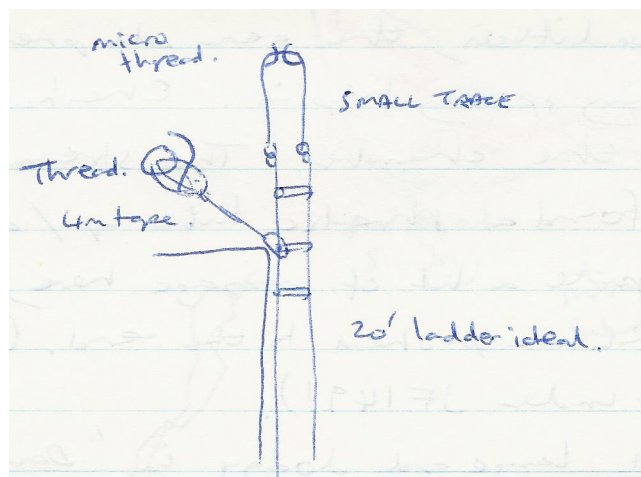 micro
thread.
SMALL TRACE
Thread.
4m tape.
20' ladder ideal.